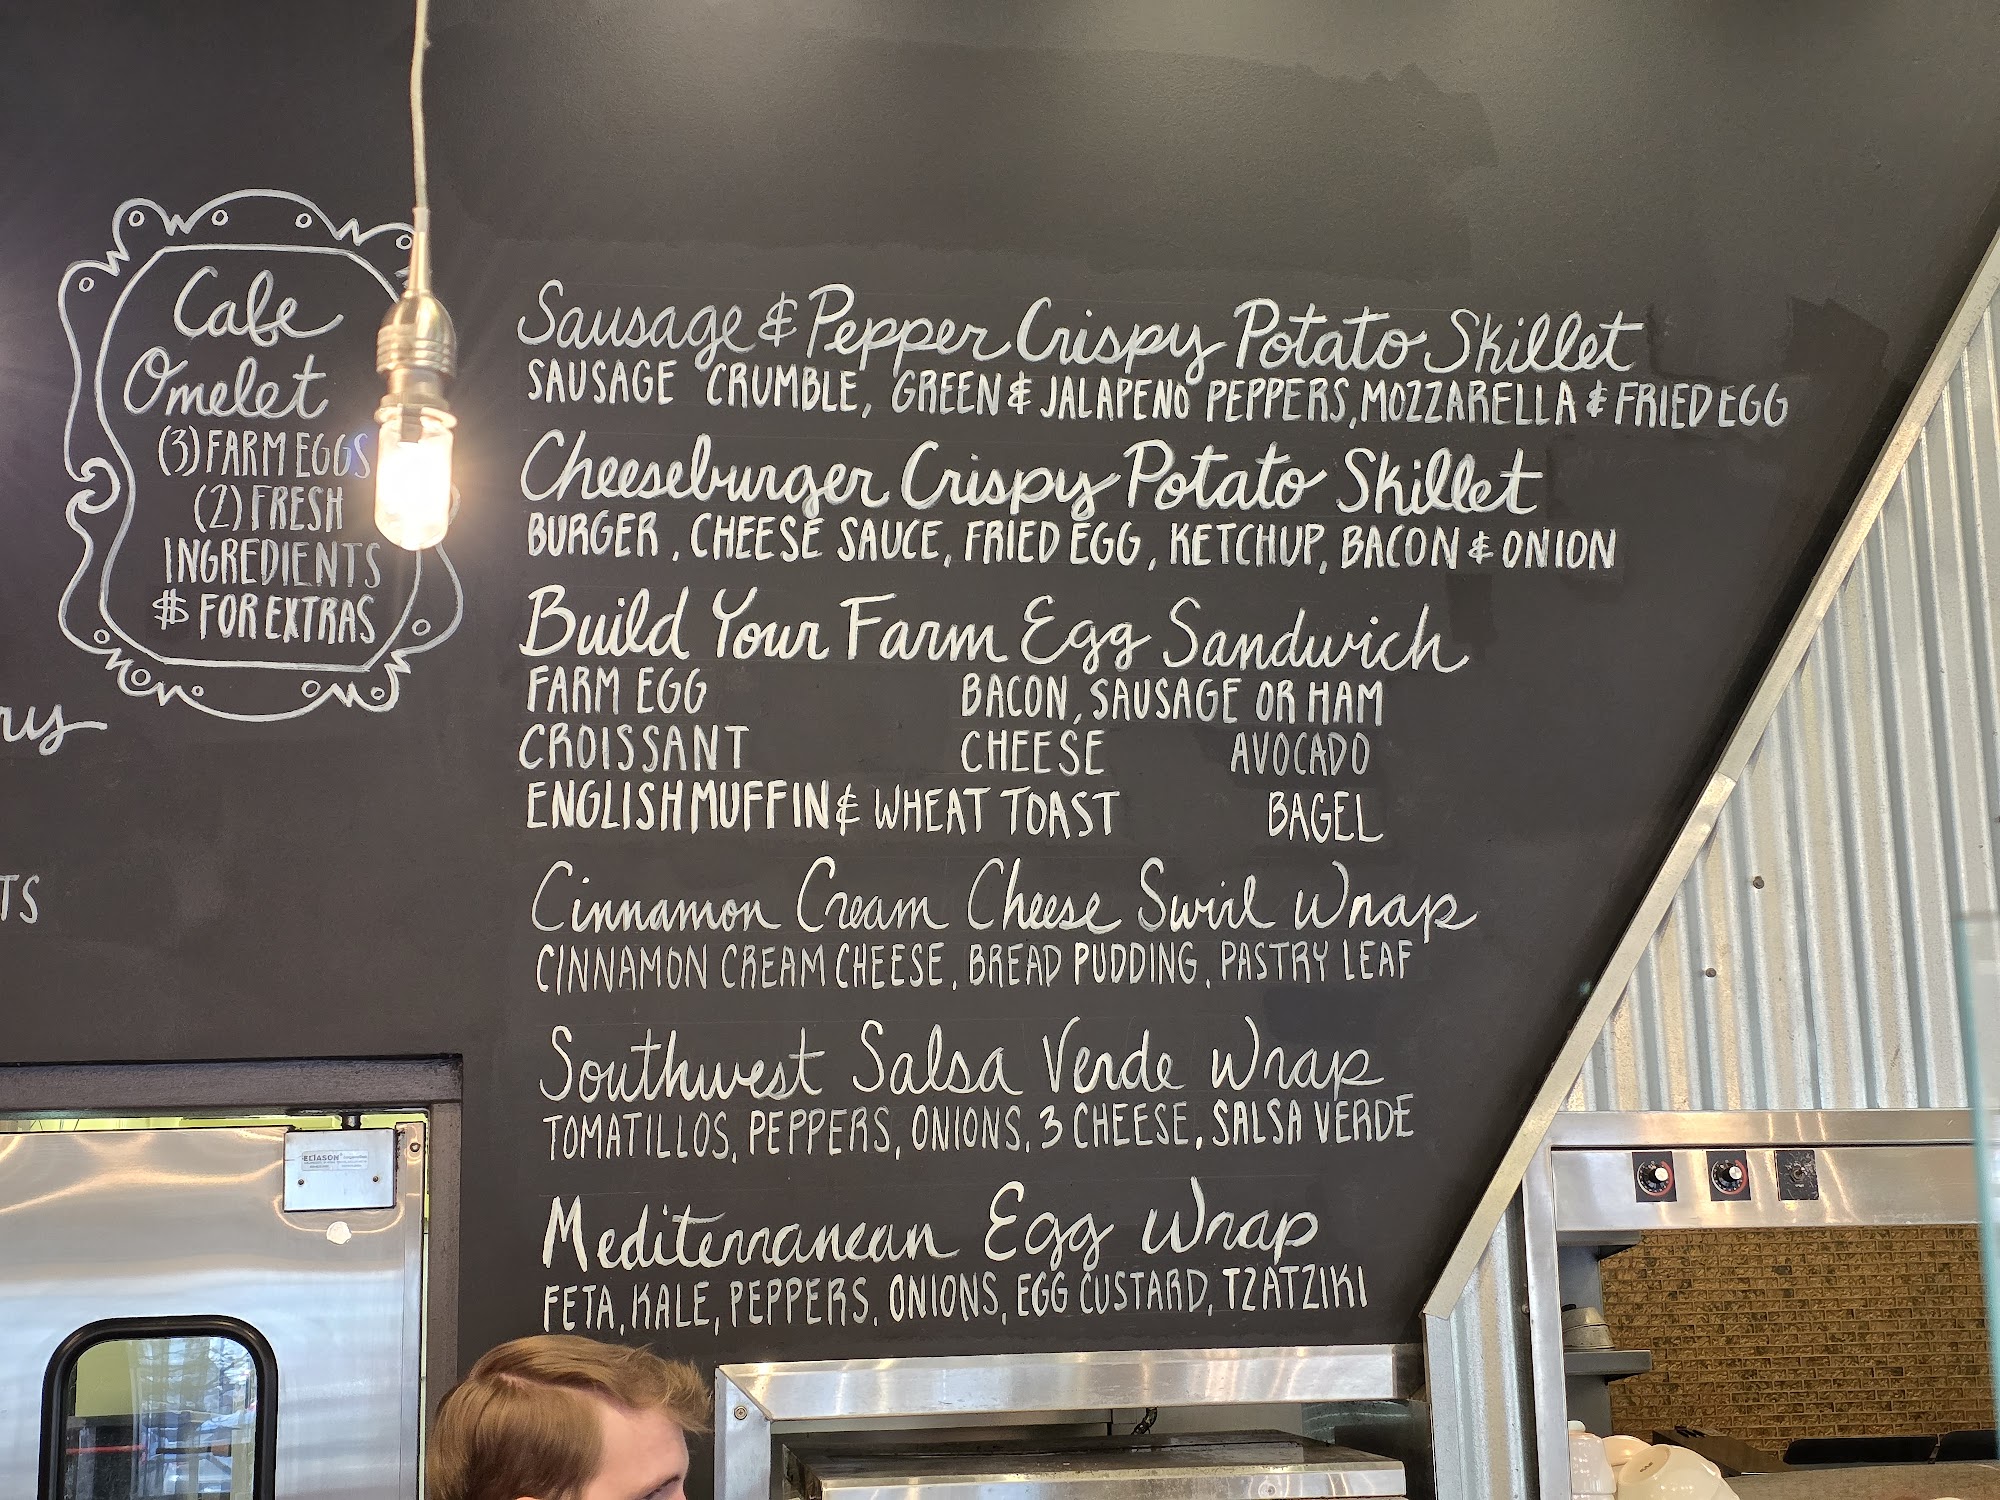 Cafe
Omelet
(3) FARM EGGS
(2) FRESH
INGREDIENTS
$ FOR EXTRAS
ry
TS
Sausage & Pepper Crispy Potato Skillet
SAUSAGE CRUMBLE, GREEN & JALAPENO PEPPERS, MOZZARELLA & FRIED EGG
Cheeseburger Crispy Potato Skillet
BURGER, CHEESE SAUCE, FRIED EGG, KETCHUP, BACON & ONION
Build Your Farm Egg Sandwich
FARM EGG BACON, SAUSAGE OR HAM
CROISSANT CHEESE AVOCADO
ENGLISH MUFFIN & WHEAT TOAST BAGEL
Cinnamon Cream Cheese Swirl Wrap
CINNAMON CREAM CHEESE, BREAD PUDDING, PASTRY LEAF
Southwest Salsa Verde Wrap
TOMATILLOS, PEPPERS, ONIONS, 3 CHEESE, SALSA VERDE
Mediterranean Egg Wrap
FETA, KALE, PEPPERS, ONIONS, EGG CUSTARD, TZATZIKI
ELIASON